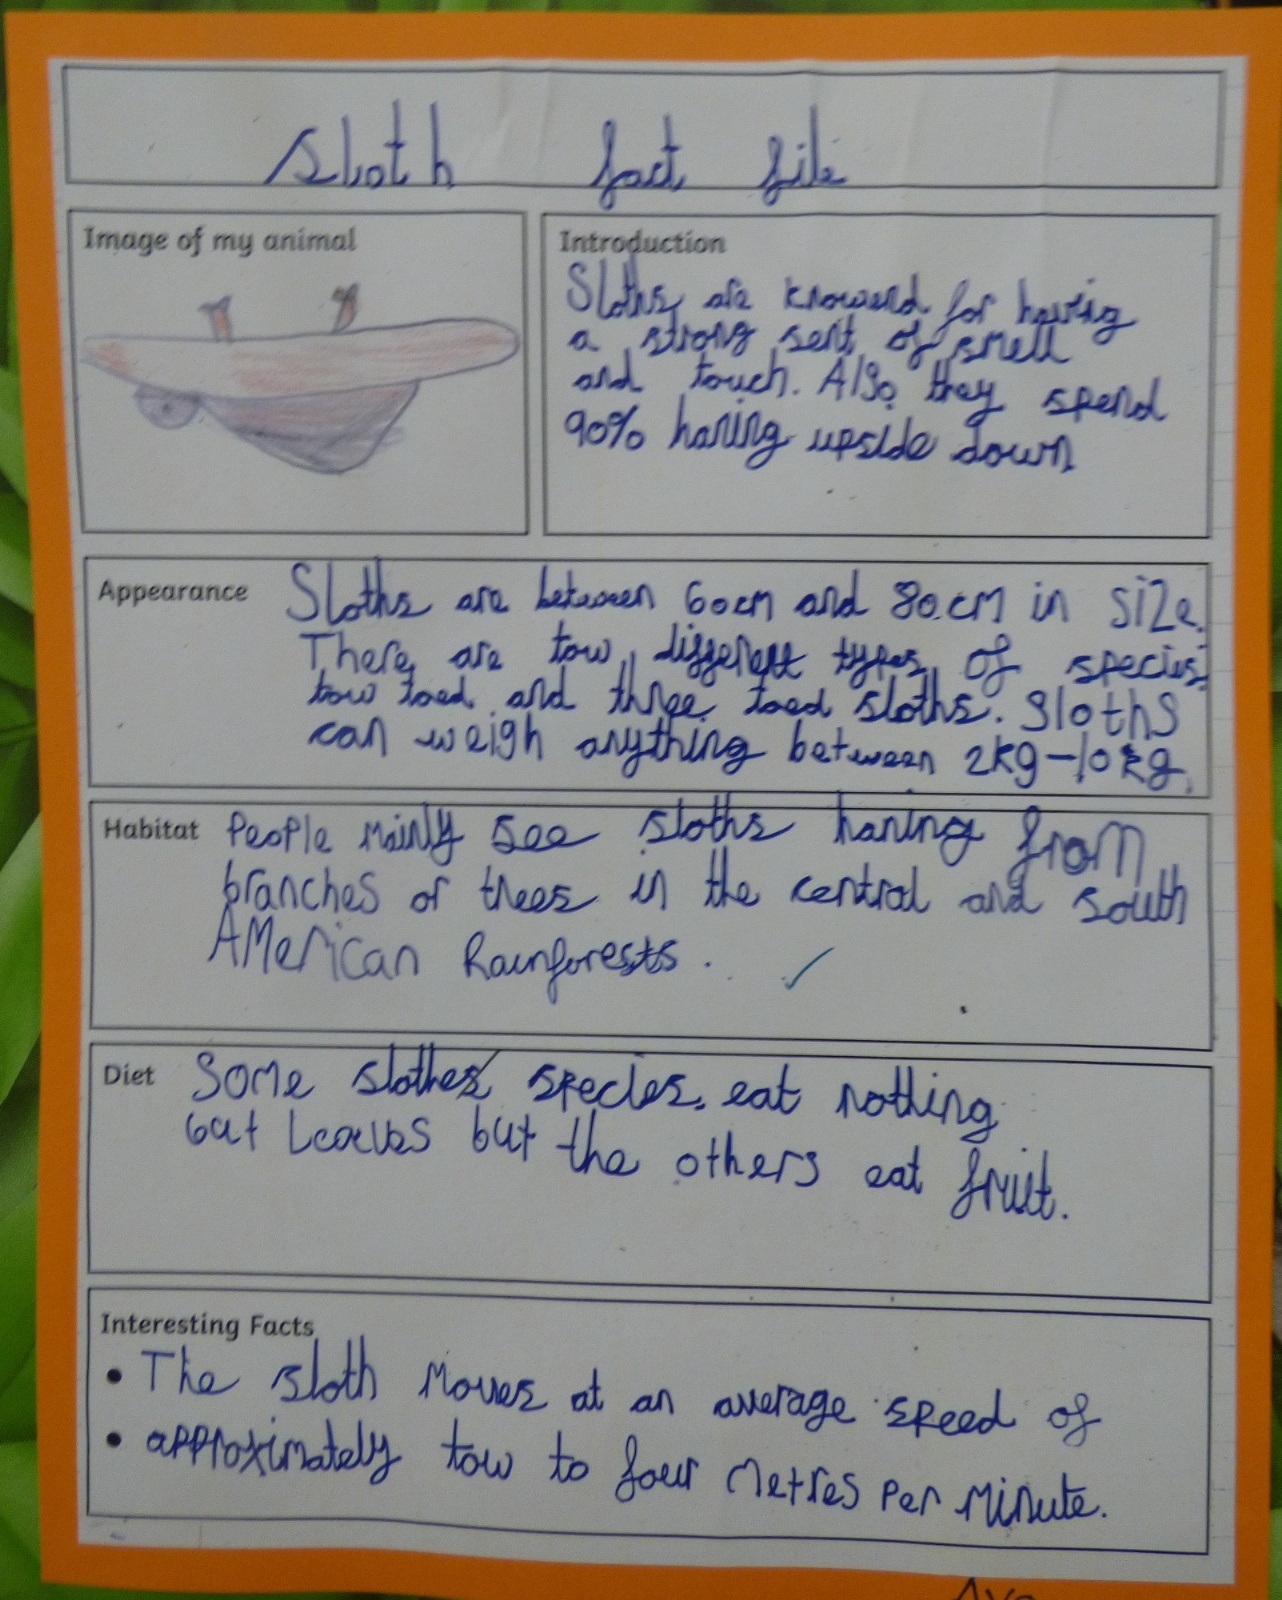 Sloth fact file
Image of my animal
Introduction
Sloths are knowend for having
a strong sent of smell
and touch. Also they spend
90% haning upside down
Appearance
Sloths are between 60cm and 80cm in size.
There are tow different types of species:
tow toed and three toed sloths. Sloths
can weigh anything between 2kg-10kg.
Habitat
People mainly see sloths haning from
branches or trees in the central and south
American Rainforests.
Diet
Some slothes species. eat nothing
but Leaves but the others eat fruit.
Interesting Facts
• The sloth moves at an average speed of
• approximately tow to four metres per minute.